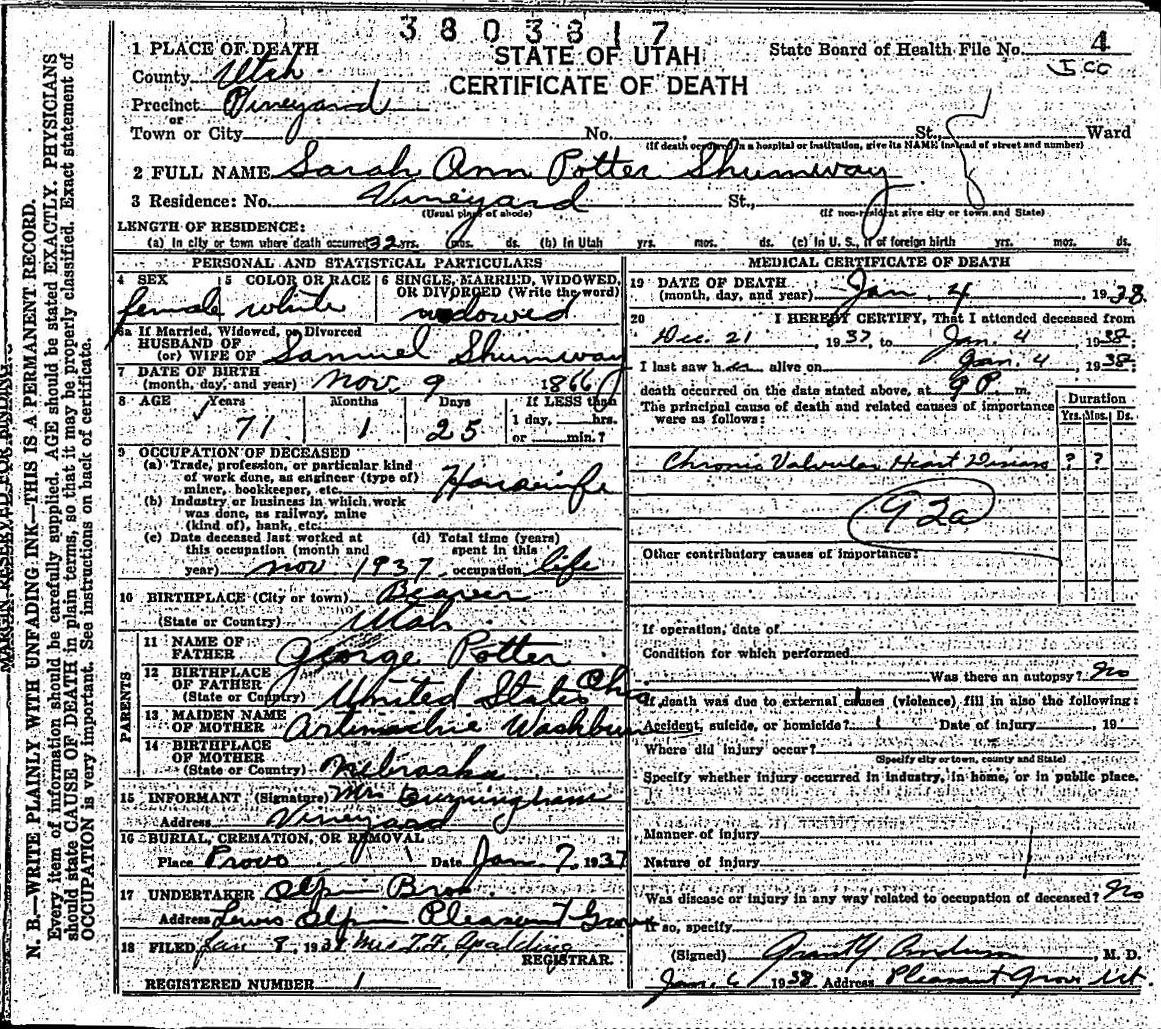 3803817
STATE OF UTAH
CERTIFICATE OF DEATH
State Board of Health File No. 4
1 PLACE OF DEATH
County Utah
Precinct Vineyard
or
Town or City No. St., Ward
(If death occurred in a hospital or institution, give its NAME instead of street and number)
2 FULL NAME Sarah Ann Potter Shumway
3 Residence: No. Vineyard St.,
(Usual place of abode) (If non-resident give city or town and State)
LENGTH OF RESIDENCE:
(a) In city or town where death occurred 32 yrs. mos. ds. (b) In Utah yrs. mos. ds. (c) In U. S., if of foreign birth yrs. mos. ds.
PERSONAL AND STATISTICAL PARTICULARS
4 SEX female
5 COLOR OR RACE white
6 SINGLE, MARRIED, WIDOWED, OR DIVORCED (Write the word)
widowed
6a If Married, Widowed, or Divorced
HUSBAND OF
(or) WIFE OF Samuel Shumway
7 DATE OF BIRTH
(month, day, and year) Nov 9 1866
8 AGE Years Months Days If LESS than
71 1 25 1 day, hrs.
or min.?
9 OCCUPATION OF DECEASED
(a) Trade, profession, or particular kind
of work done, as engineer (type of)
miner, bookkeeper, etc. Housewife
(b) Industry or business in which work
was done, as railway, mine
(kind of), bank, etc.
(c) Date deceased last worked at
this occupation (month and
year) Nov 1937
(d) Total time (years)
spent in this
occupation life
10 BIRTHPLACE (City or town) Beaver
(State or Country) Utah
PARENTS
11 NAME OF
FATHER George Potter
12 BIRTHPLACE
OF FATHER
(State or Country) United States Ohio
13 MAIDEN NAME
OF MOTHER Washburn
14 BIRTHPLACE
OF MOTHER
(State or Country) Nebraska
15 INFORMANT (Signature) Mrs Burningham
Address Vineyard
16 BURIAL, CREMATION, OR REMOVAL
Place Provo Date Jan 7, 1937
17 UNDERTAKER Olpin Bros
Address Lewis Olpin Pleasant Grove
18 FILED Jan 8, 193 Mrs Spalding
REGISTRAR.
REGISTERED NUMBER 1
MEDICAL CERTIFICATE OF DEATH
19 DATE OF DEATH
(month, day, and year) Jan. 4, 1938
20 I HEREBY CERTIFY, That I attended deceased from
Dec. 21, 1937, to Jan. 4, 1938;
I last saw her alive on Jan. 4, 1938;
death occurred on the date stated above, at 9 P. m.
The principal cause of death and related causes of importance
were as follows:
Duration
Yrs. Mos. Ds.
Chronic Valvular Heart Disease ? ?
92a
Other contributory causes of importance:
If operation, date of
Condition for which performed
Was there an autopsy? No
If death was due to external causes (violence) fill in also the following:
Accident, suicide, or homicide? Date of injury 19
Where did injury occur?
(Specify city or town, county and State)
Specify whether injury occurred in industry, in home, or in public place.
Manner of injury
Nature of injury
Was disease or injury in any way related to occupation of deceased? No
If so, specify
(Signed) Grant Y. Anderson, M. D.
Jan. 6 1938 Address Pleasant Grove Ut.
N. B.—WRITE PLAINLY WITH UNFADING INK—THIS IS A PERMANENT RECORD.
Every item of information should be carefully supplied. AGE should be stated EXACTLY. PHYSICIANS
should state CAUSE OF DEATH in plain terms, so that it may be properly classified. Exact statement of
OCCUPATION is very important. See instructions on back of certificate.